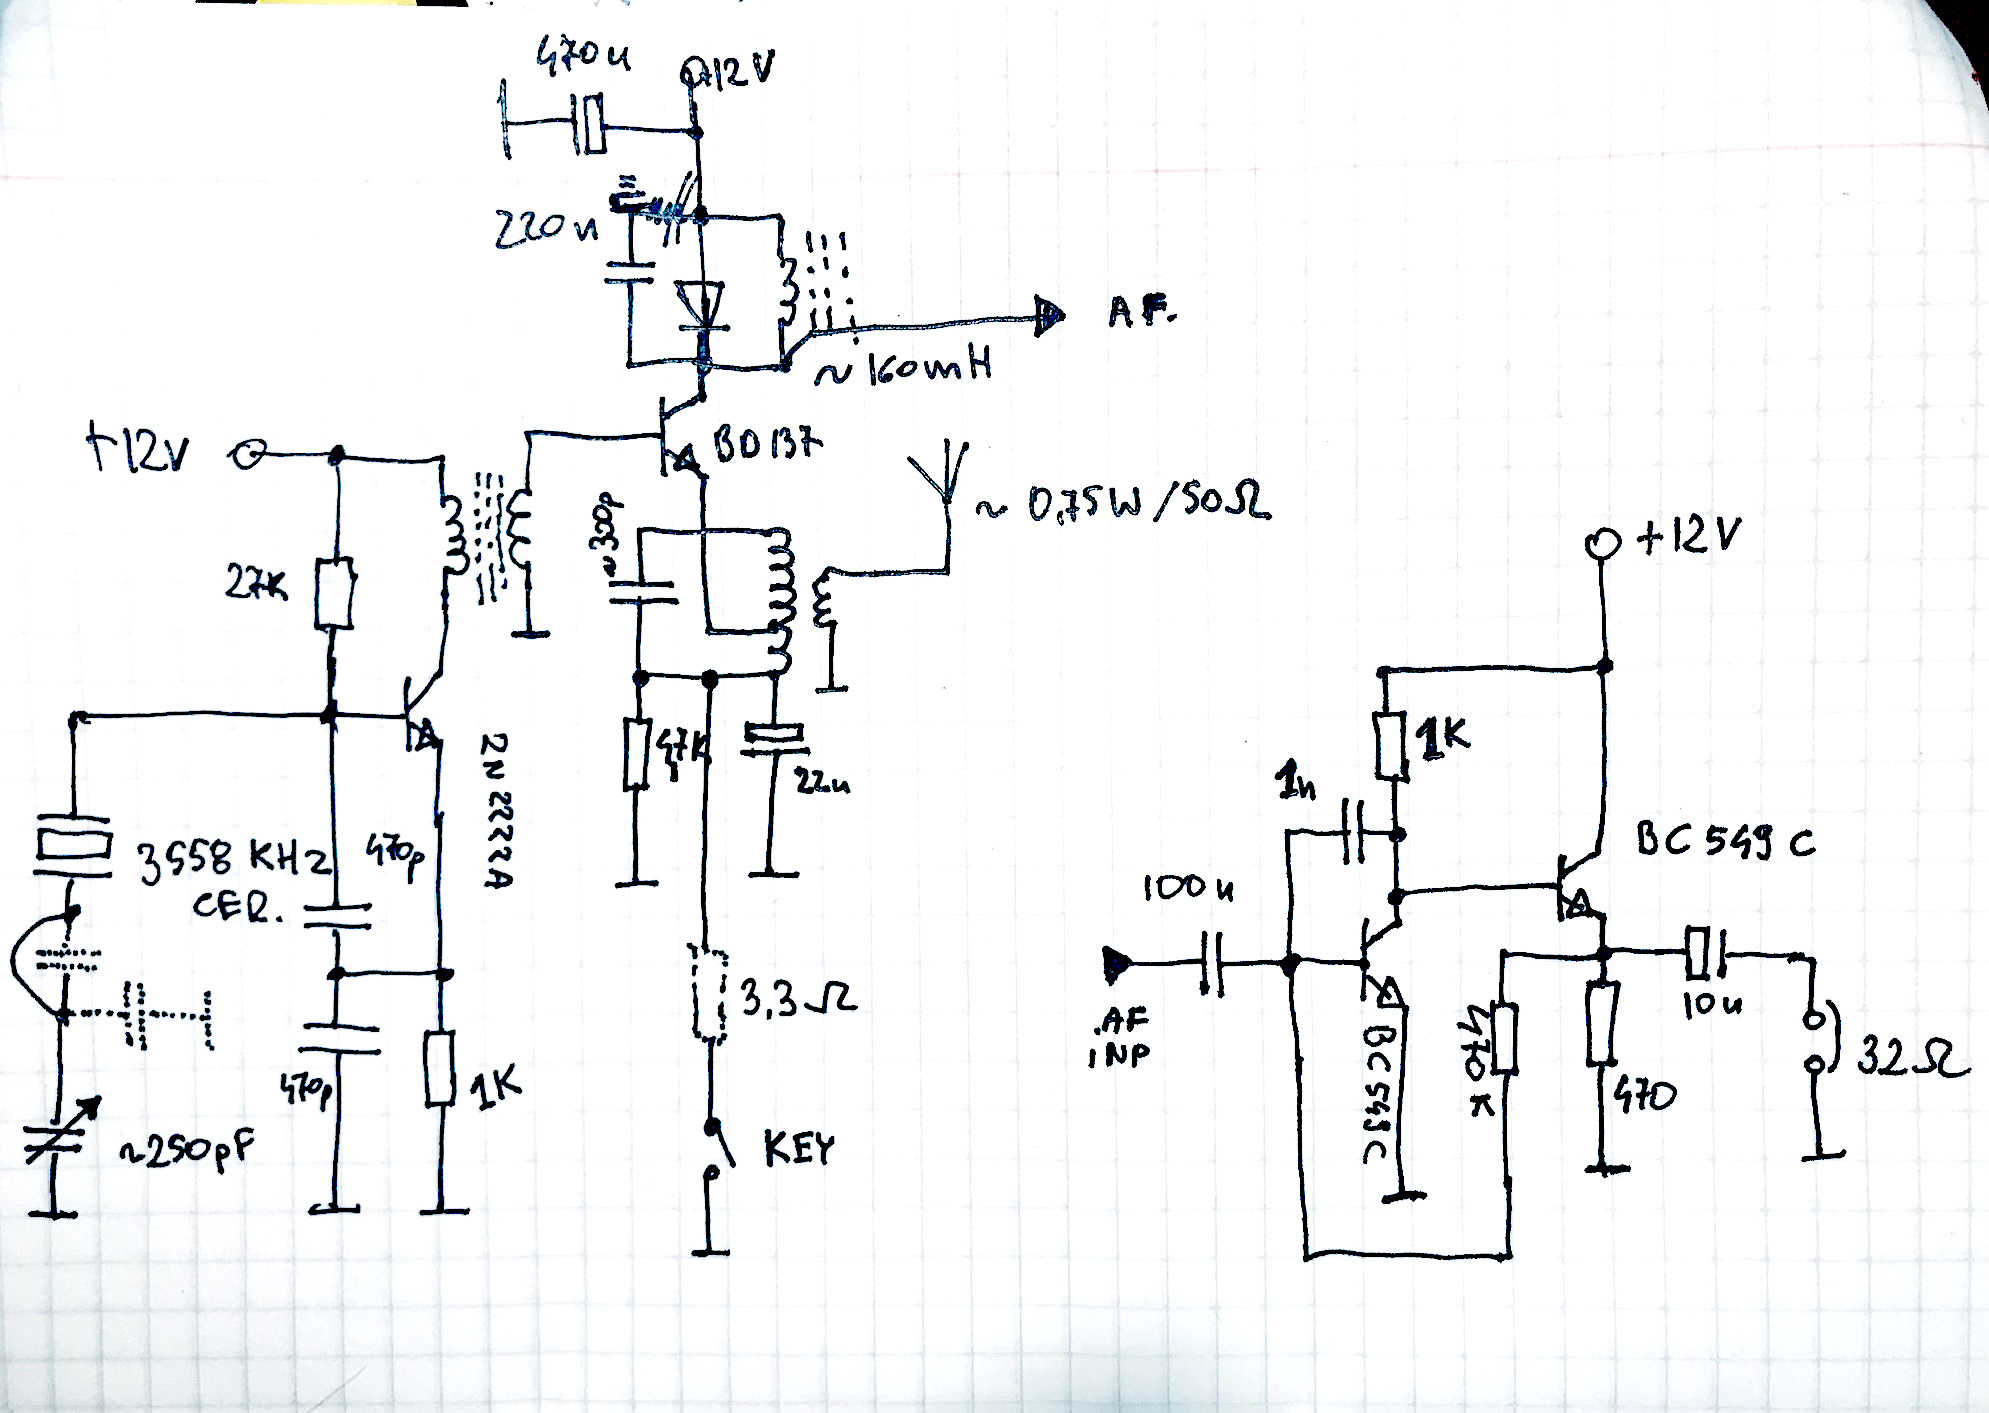 470u
+12V
220n
AF.
~160mH
BD137
+12V
~300p
~0,75W/50Ω
27K
+12V
47K
22u
1K
2N2222A
1n
3558 KHz
CER.
470p
BC549C
100u
3,3Ω
AF
INP
BC549C
470K
10u
32Ω
470p
1K
470
~250pF
KEY